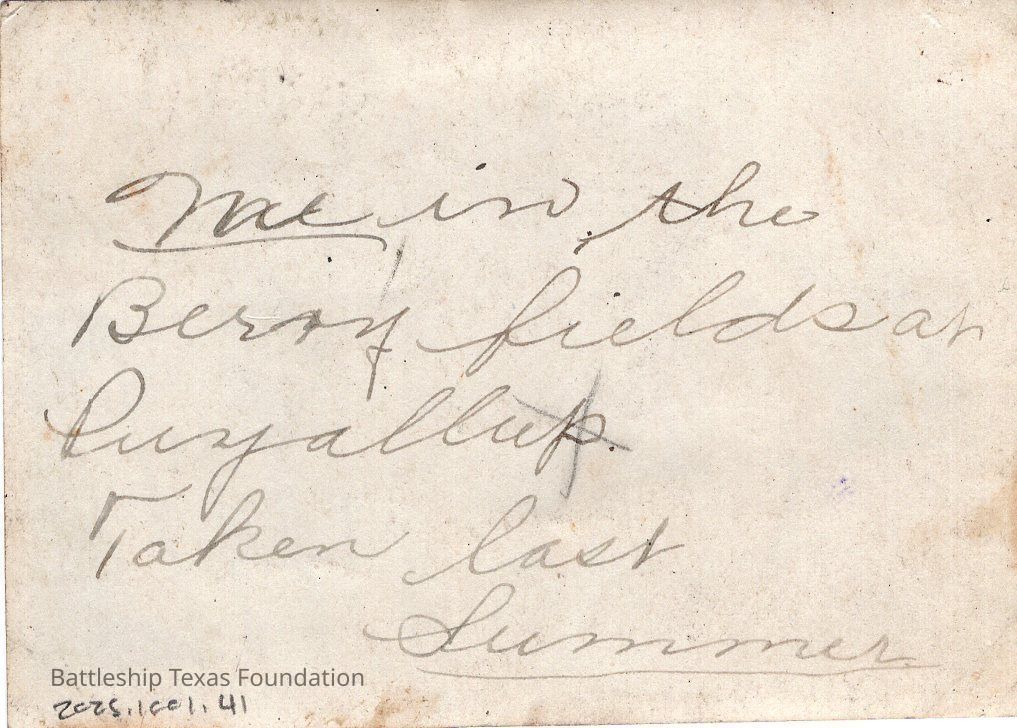 Me in the
Berry fields at
Puyallup.
Taken last
Summer
Battleship Texas Foundation
2025.1001.41